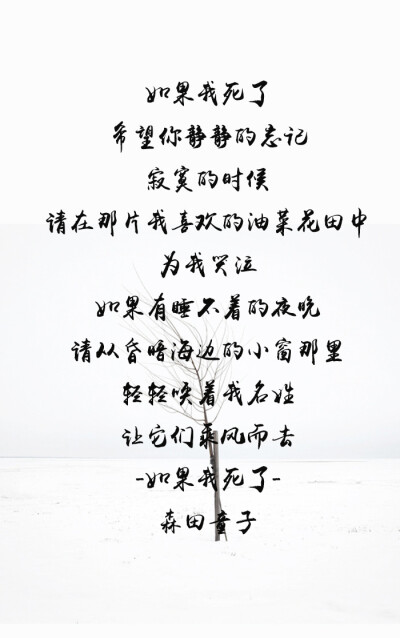 如果我死了
希望你静静的忘记
寂寞的时候
请在那片我喜欢的油菜花田中
为我哭泣
如果有睡不着的夜晚
请从昏暗海边的小窗那里
轻轻唤着我名姓
让它们乘风而去
-如果我死了-
森田童子